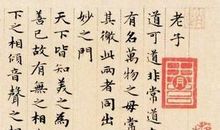 老子
道可道非常道
有名萬物之母常
其徼此兩者同出
妙之門
天下皆知美之為
善已故有無之相
下之相傾音聲之相